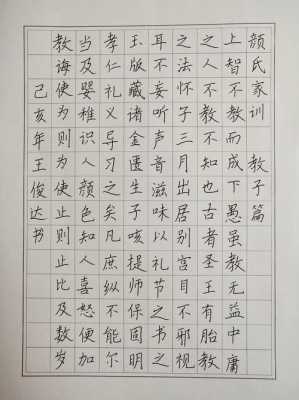 颜氏家训 教子篇
上智不教而成下愚虽教无益中庸
之人不教不知也古者圣王有胎教
之法怀子三月出居别宫目不邪视
耳不妄听声音滋味以礼节之书之
玉版藏诸金匮生子咳提师保固明
孝仁礼义导习之矣凡庶纵不能尔
当及婴稚识人颜色知人喜怒便加
教诲使为则为使止则止比及数岁
己亥年王俊达书